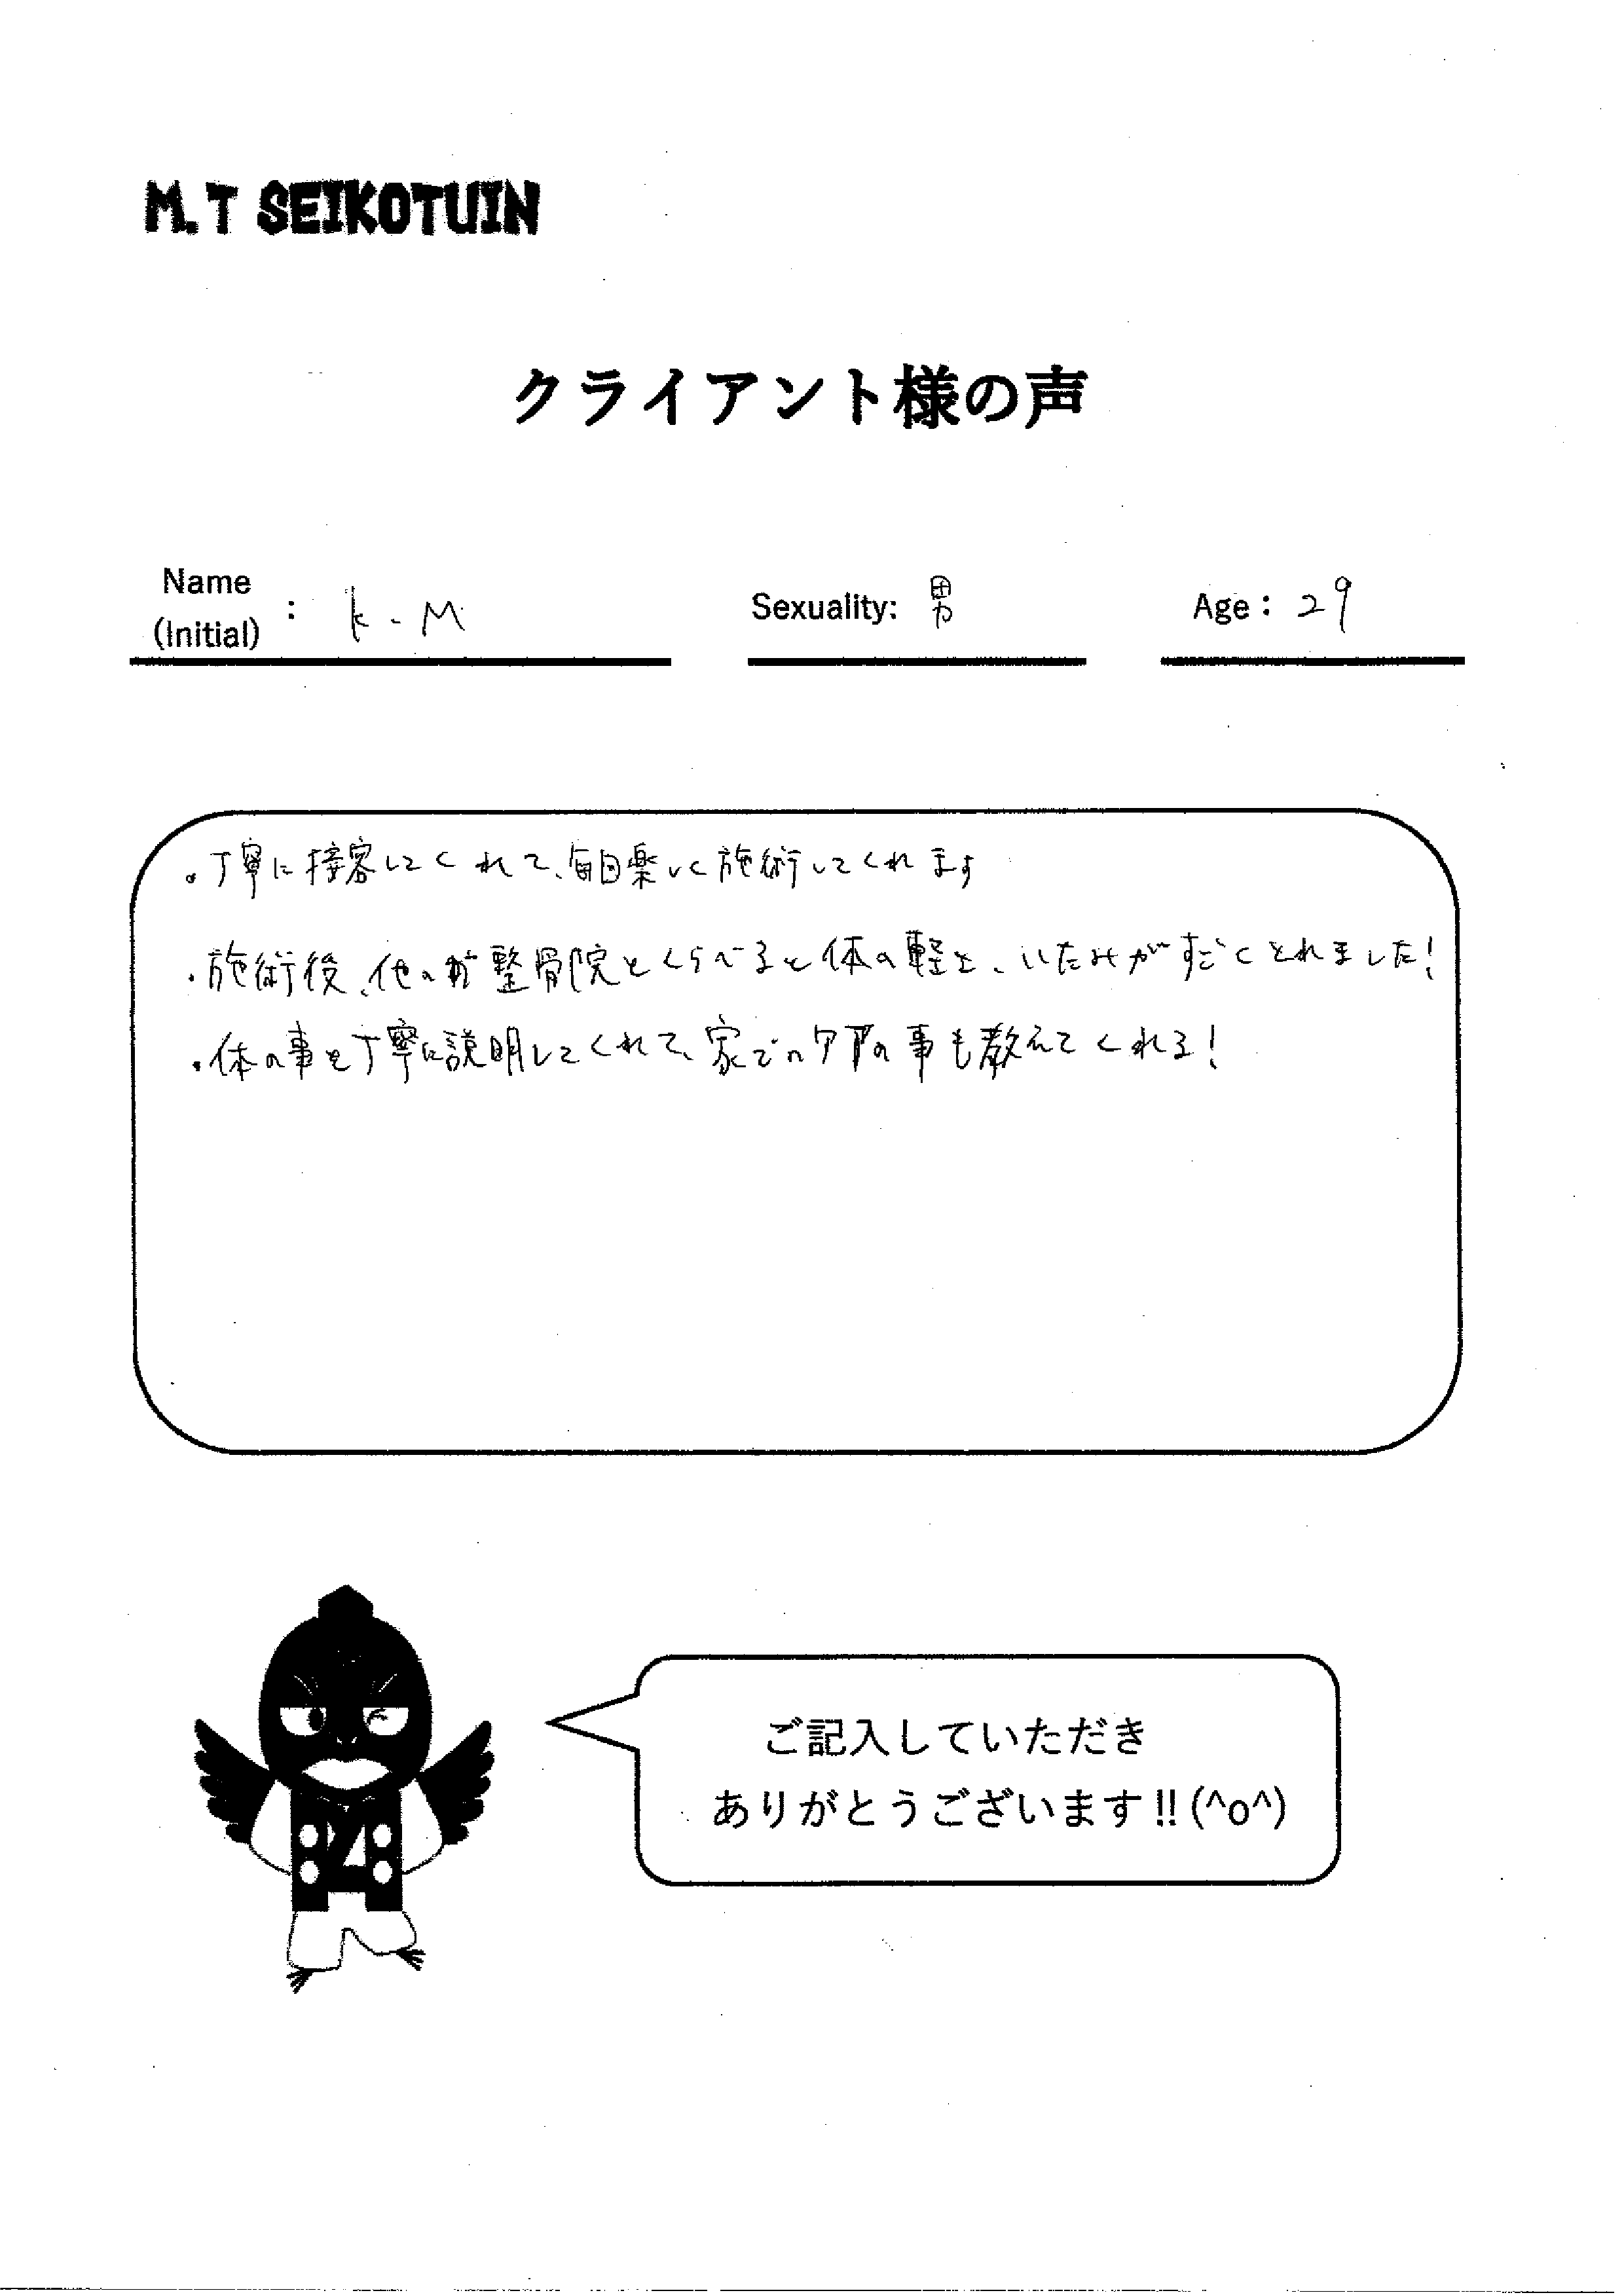 M.T SEIKOTUIN
クライアント様の声
Name
(Initial) : k.M Sexuality: 男 Age: 29
・丁寧に接客してくれて、毎日楽しく施術してくれます
・施術後、他の整骨院とくらべると体の軽さ、いたみがすごくとれました!
・体の事を丁寧に説明してくれて、家でのケアの事も教えてくれる!
ご記入していただき
ありがとうございます!!(^o^)